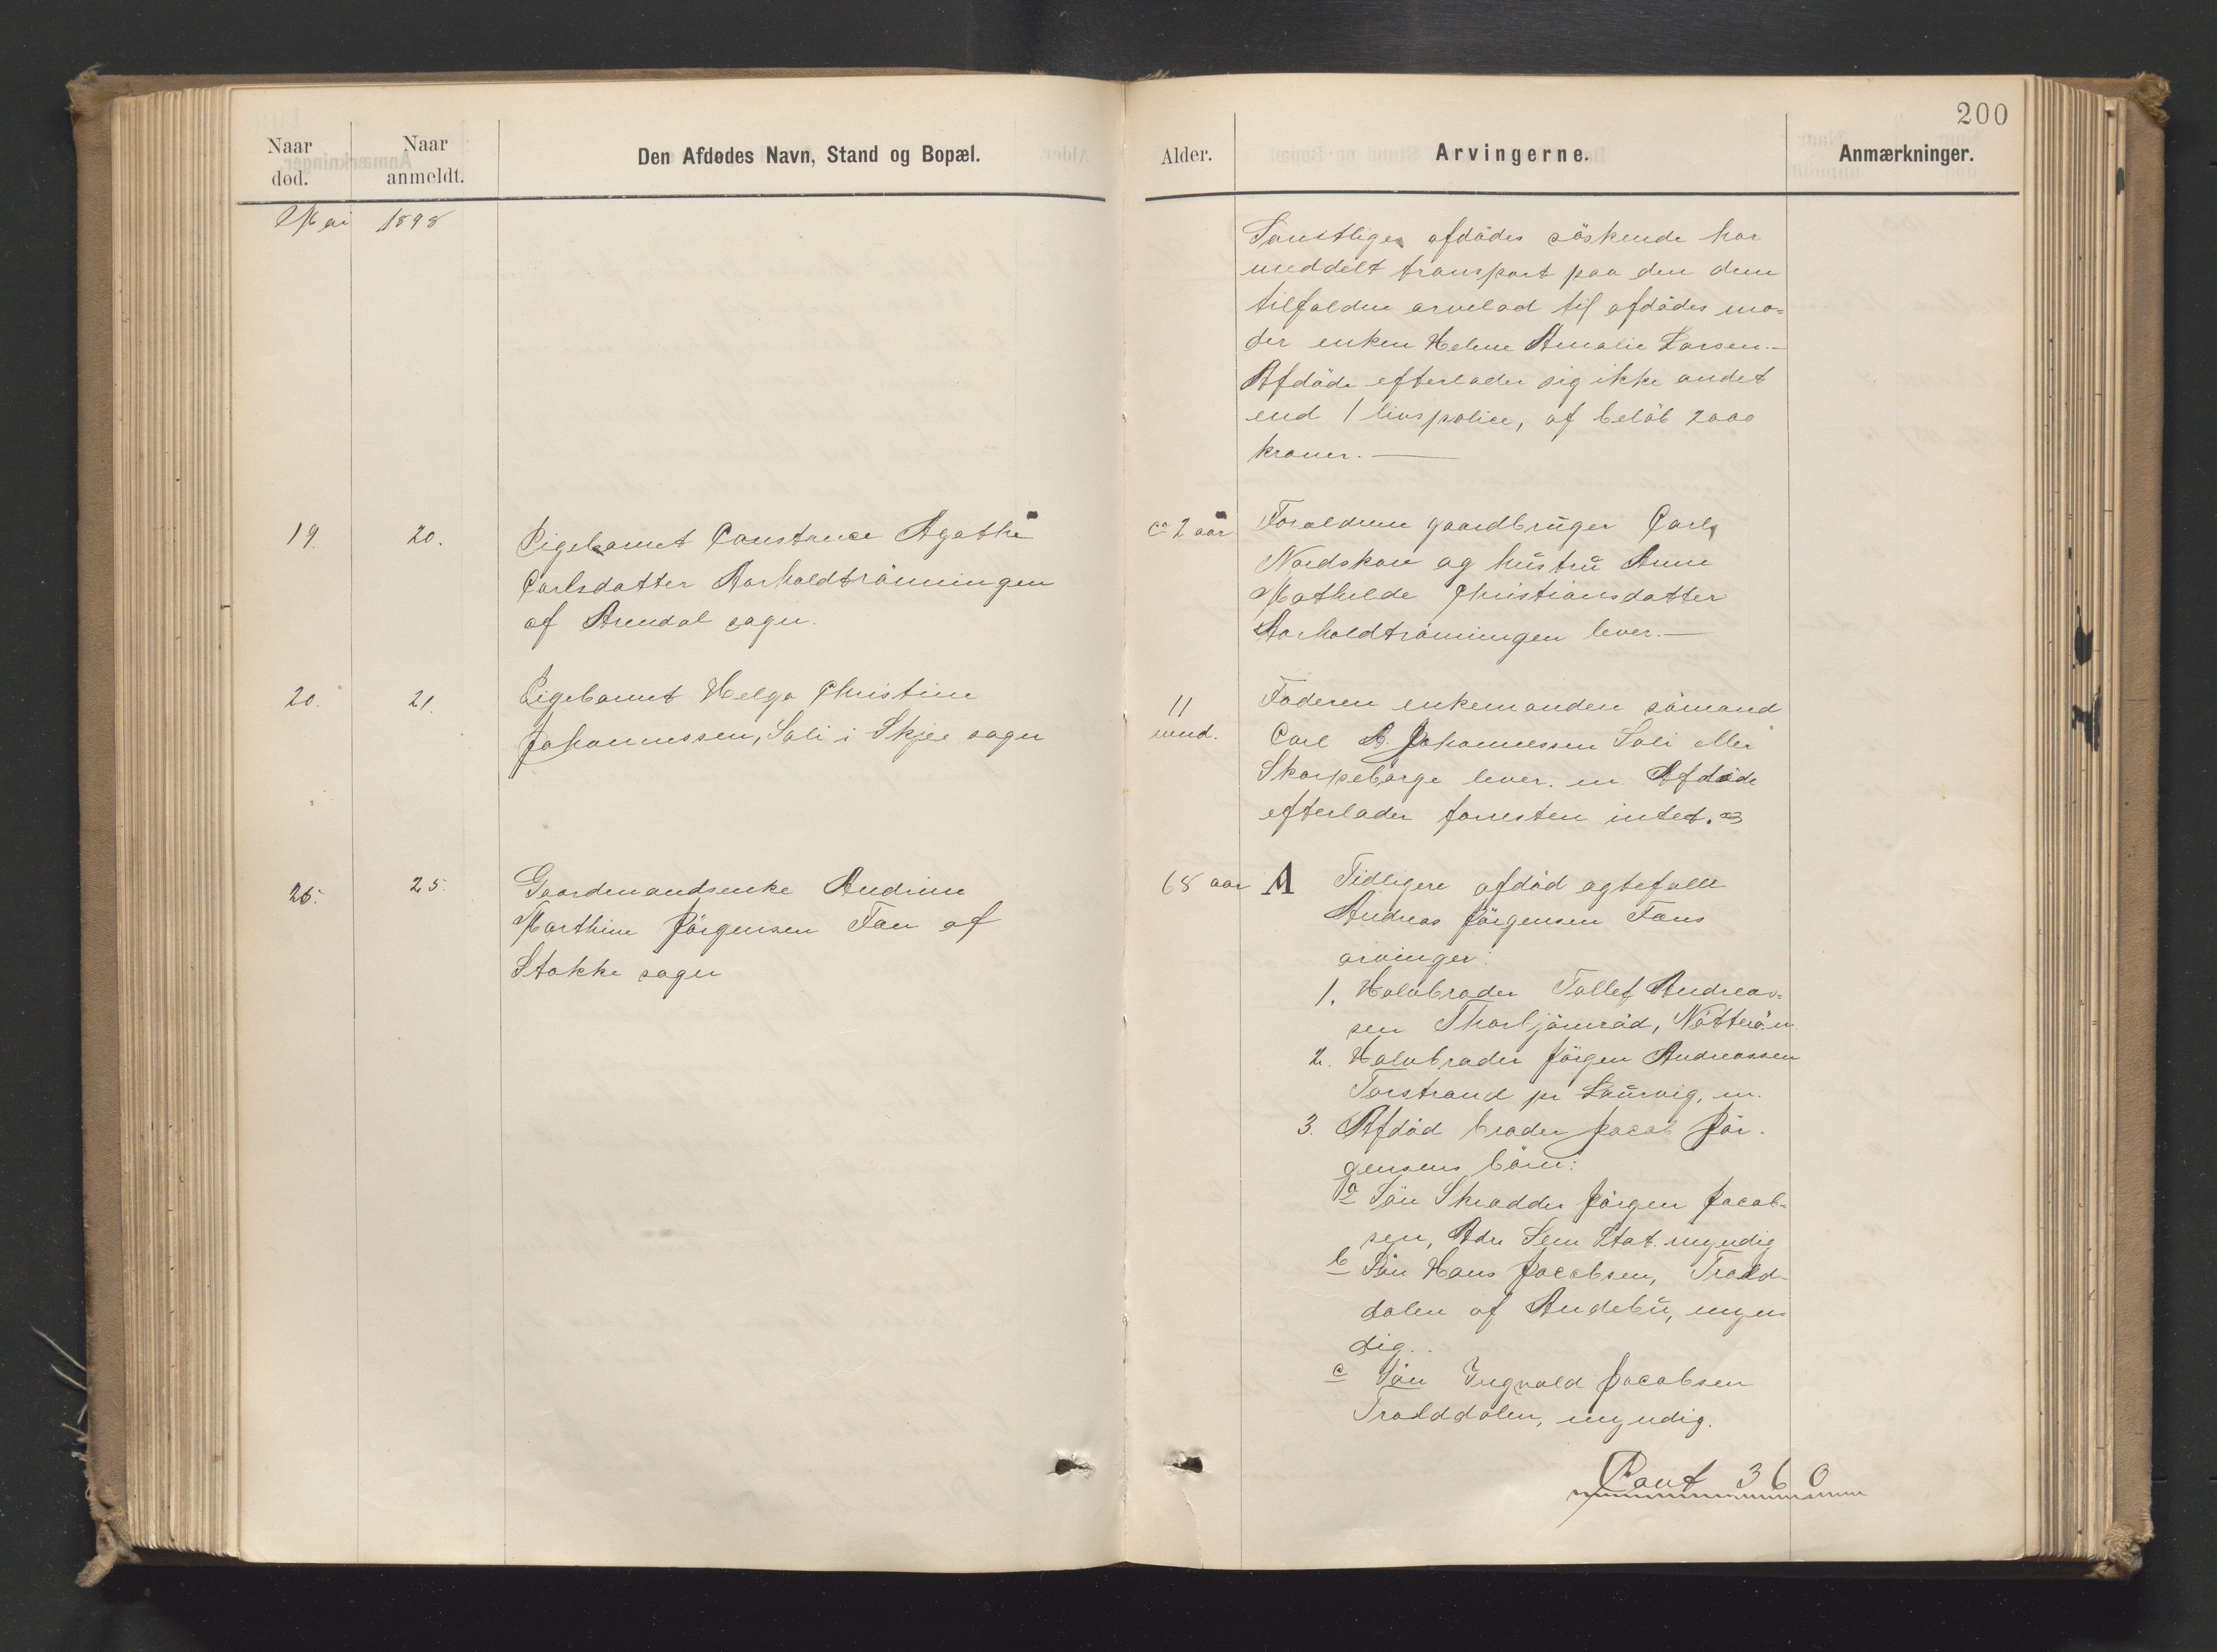 200
Naar død.
Naar anmeldt.
Den Afdødes Navn, Stand og Bopæl.
Alder.
Arvingerne.
Anmærkninger.
Mai 1898
Samtlige afdødes søskende har
meddelt transport paa den dem
tilfaldne arvelod til afdødes mo-
der enken Helene Amalie Larsen.-
Afdøde efterlader sig ikke andet
end 1 livspolice, af beløb 2000
kroner.
19. 20. Pigebarnet Constance Agathe
Carlsdatter Aarholdtrønningen
af Arendal sogn.
ca 2 aar
Forældrene gaardbruger Carl
Nordskov og hustru Anne
Mathilde Christiansdatter
Aarholdtrønningen lever.-
20. 21. Pigebarnet Helga Christine
Johannessen, Soli i Skjee sogn
11
mnd.
Faderen enkemanden sømand
Carl A. Johannessen Soli eller
Skorpeborge lever. en Afdøde
efterlader forresten intet.
25. 25. Gaardmandsenke Andrine
Marthine Jörgensen Fån af
Stokke sogn
68 aar
A Tidligere afdød ægtefælle
Andreas Jörgensen Fåns
arvinger:
1. Halvbroder Tollef Andreas-
sen Thorbjörnrød, Nötterö. m
2. Halvbroder Jörgen Andreassen
Torstrand pr Laurvig, m.
3. Afdød broder Jacob Jör-
gensens börn:
a Sön Skrædder Jörgen Jacob-
sen, Adr Sem Stat. myndig
b Sön Hans Jacobsen, Trold-
dalen af Andebu, myn
dig.
c Sön Ingvald Jacobsen
Trolddalen, myndig.
Cont 360